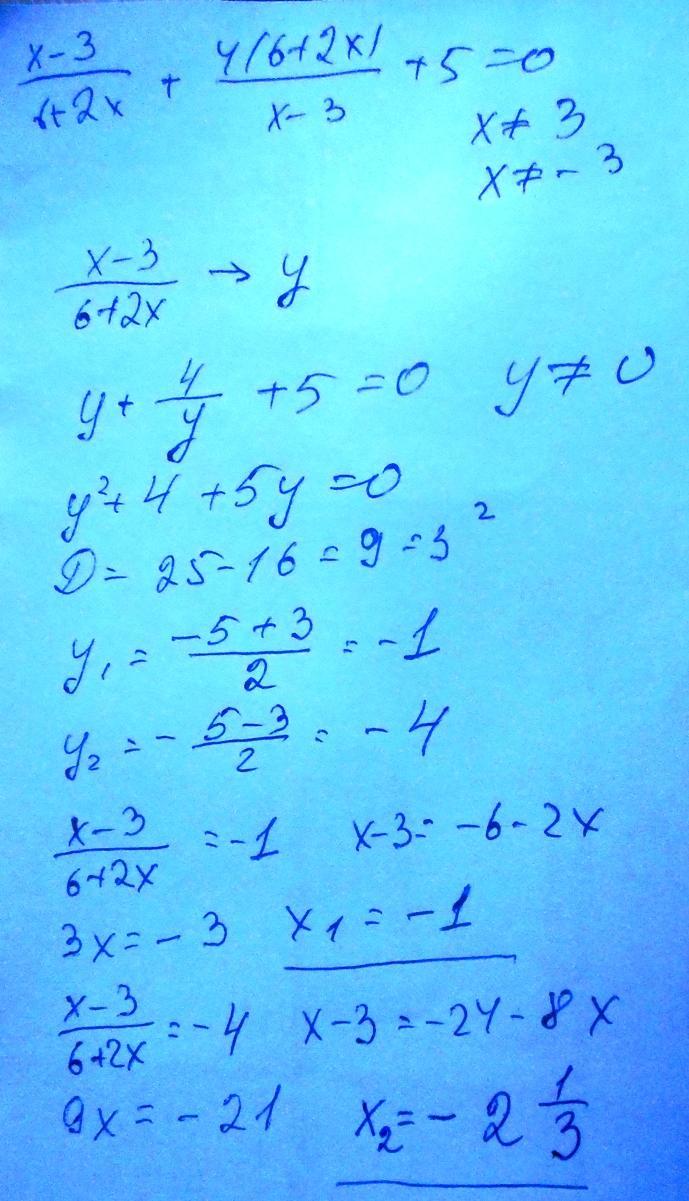 x-3/6+2x + 4(6+2x)/x-3 +5=0
x≠3
x≠-3
x-3/6+2x → y
y+ 4/y +5=0 y≠0
y²+4+5y=0
D= 25-16=9=3²
y₁= -5+3/2 = -1
y₂=- 5-3/2 = -4
x-3/6+2x =-1 x-3= -6-2x
3x=-3 x₁=-1
x-3/6+2x =-4 x-3=-24-8x
9x=-21 x₂=-2 1/3